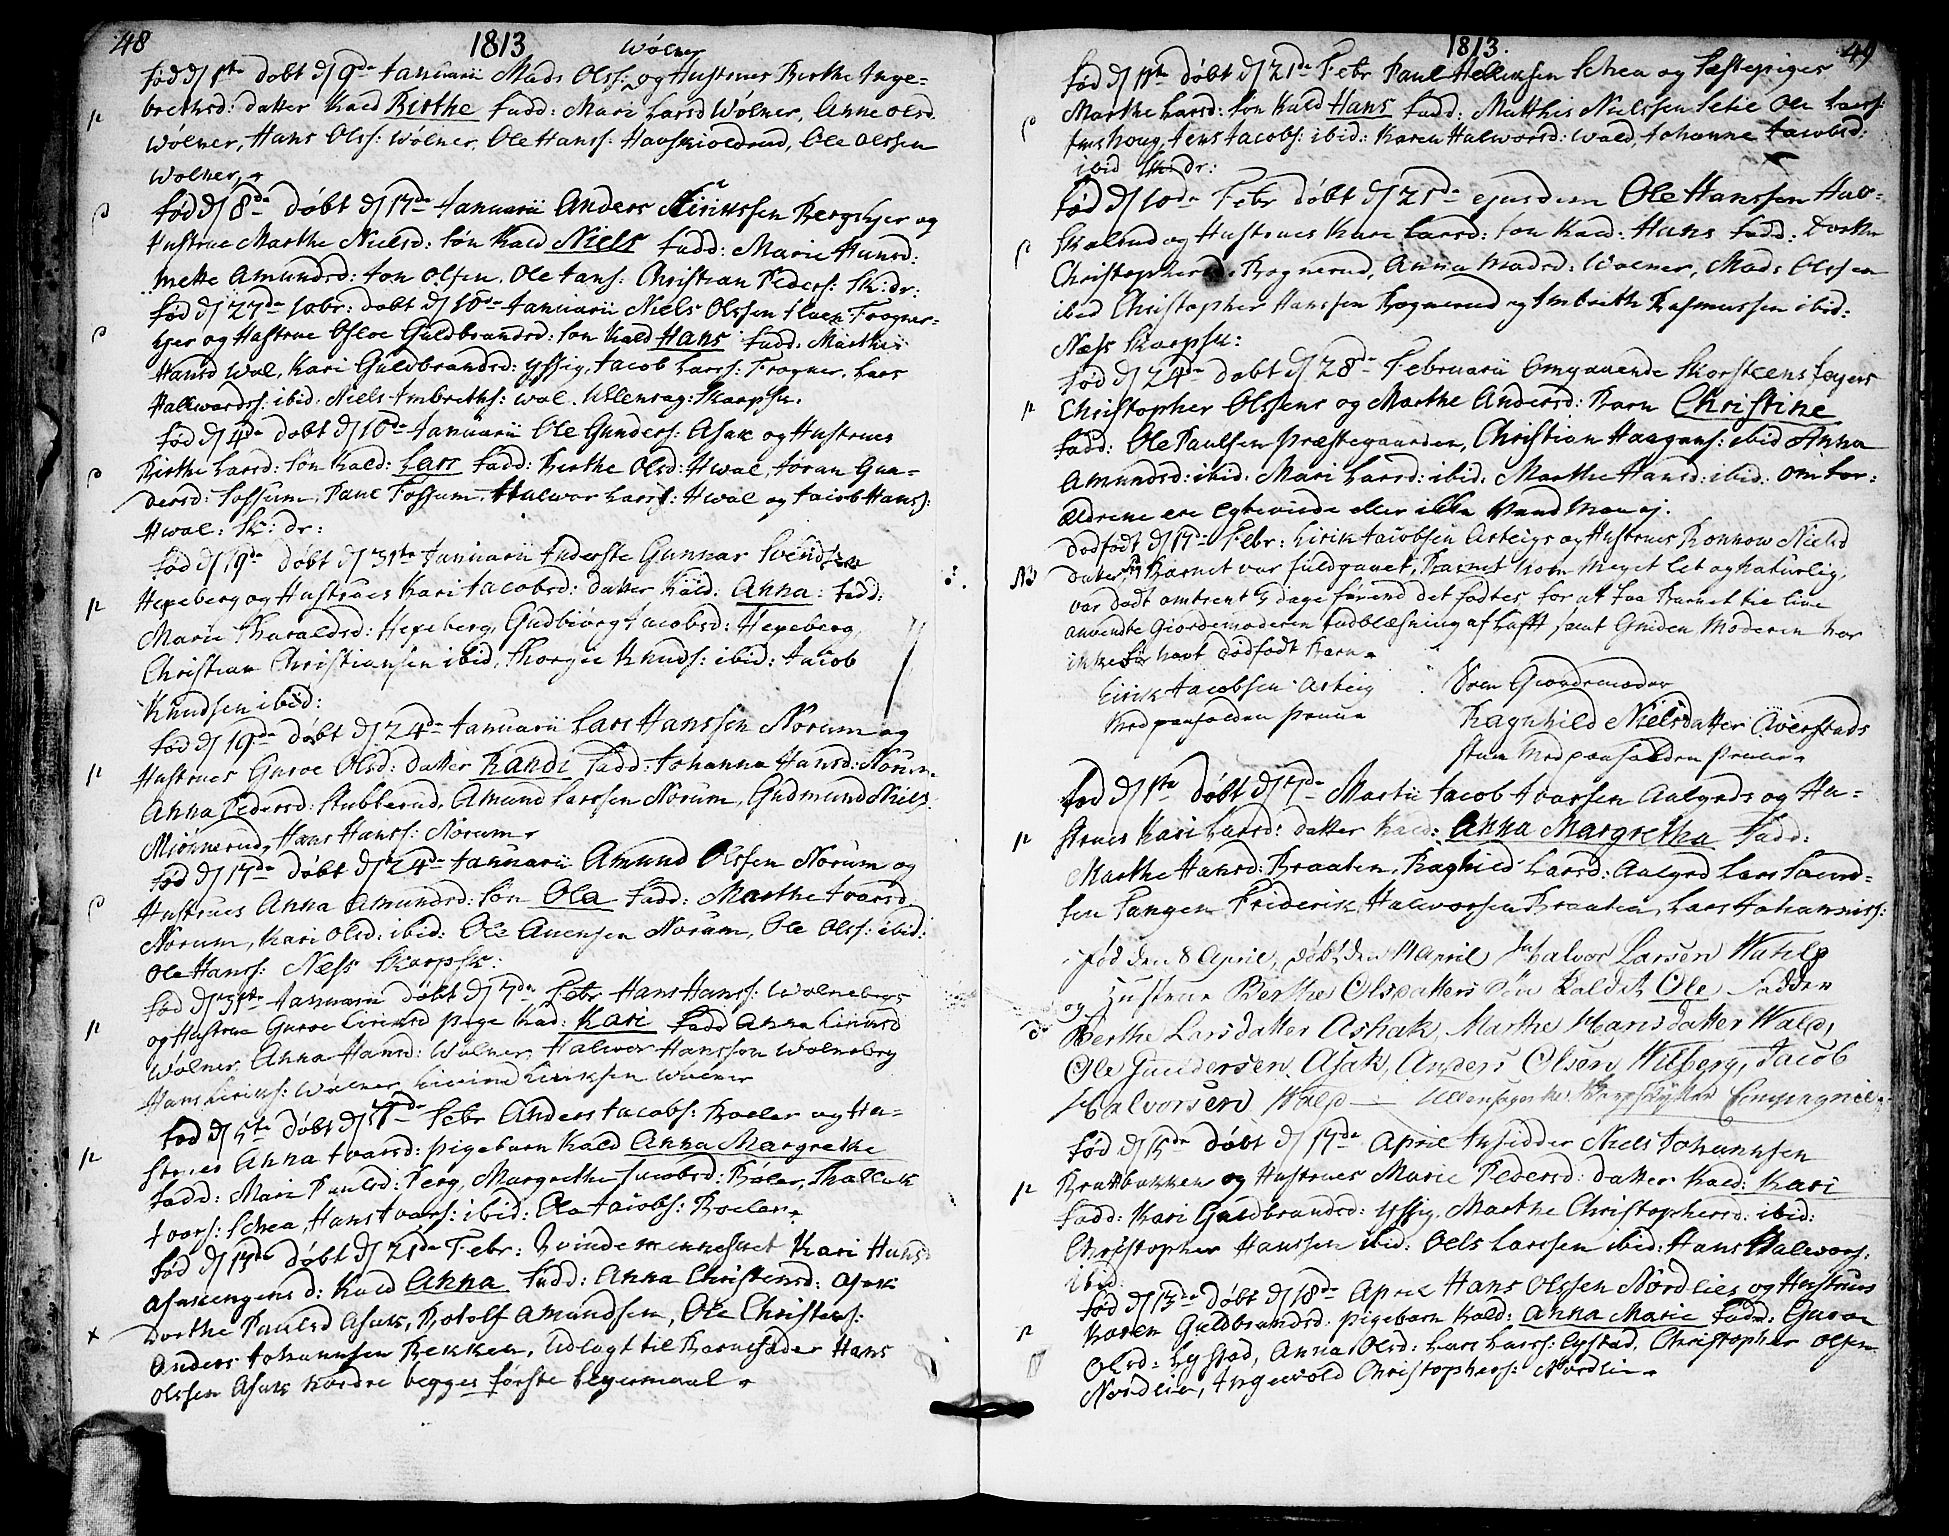 48
1813
Wölner
fød d 1ste døbt d 9de Januarii Mads Olss: og Hustrues Birthe Inge-
brethsd: datter kald Birthe fadd: Mari Larsd Wölner, Anne Olsd
p
Wölner, Hans Olss: Wölner, Ole Hanss: Havskioldrud, Ole Olssen
Wölner,
fød d 8de døbt d 17de Januarii Anders Bergskjer og
Hustrue Marthe Nielsd: søn kald Niels fadd: Marie Hansd:
Mette Amundsd: Jon Olsen. Ole Jans: Christian Peders: Sk: dr:
fød d 27de 10br: døbt d 10de Januarii Niels Olssen Frogner-
ejer og Hustrue Guldbrandsd: søn kald Hans fadd: Marthe
Hansd Wal, Kari Guldbrandsd: yssig, Jacob Larss: Frogner, Lars
Hallwordss: ibid. Niels Imbreths: Wal. Ullensag: Skarpsk.
fød d 4de døbt d 10de Januarii Ole Gunders: Asak og Hustrues
Birthe Larsd: søn kald: Lars fadd: Birthe Olsd: Hwal, Jøran Gun-
dersd: Fossum, Paul Fossum, Halwor Larss: Hwal og Jacob Hanss:
Hwal: Sk: dr:
fød d 19de døbt d 31ste Januarii Inderste Gunnar Svendsen
p
Hexeberg og Hustrues Kari Jacobsd: datter kald: Anna: fadd:
Marie Haraldsd: Hexeberg, Gudbiørg Jacobsd: Hexeberg,
Christian Christiansen ibid, Thorgie Knuds: ibid: Jacob
Knudsen ibid:
fød d 19de døbt d 24de Januarii Lars Hanssen Norum og
p
Hustrues Guroe Olsd: datter Randi fadd: Johanna Hansd: Norum
Anna Pedersd: Stubberud, Amund Larssen Norum, Gudmund Niels
Miønnerud, Hans Hanss: Norum
fød d 17de døbt d 24de Januarii Amund Olssen Norum og
Hustrues Anna Amundsd: søn Ola fadd: Marthe Ivarsd
Norum, Kari Olsd: ibid: Ole Evensen Norum, Ole Olss: ibid:
Ole Hanss: Næss Skarpsk:
fød d 31ste Januarii døbt d 7de Febr Hans Hanss: Wolneberg
p
og Hustrue Guroe Eiriksd pige kad: Kari fadd Anna Eiriksd
Wölner, Anna Hansd: Wölner, Halwor Hanssen Wolneberg
Hans Eiriks: Wölner, Eivind Eiriksen Wölner
fød d 5te døbt d de Febr Anders Jacobs: Boeler og Hu-
p
strues Anna Ivarsd: pigebarn kald Anna Margrethe
fadd: Mari Paulsd: Berg, Margrethe Jacobsd: Bøler, Thallak
Ivars: Schea, Hans Ivars: ibid: Ole Jacobs: Boeler
fød d 13de døbt d 21de Febr: Qvindemennesket Kari Hans
Asakengens d: kald Anna fadd: Anna Christensd: Asak
Dorthe Paulsd Asak, Rotolf Amundsen, Ole Christens:
x
Anders Johannsen Bekken, Udlagt til Barnefader Hans
Olssen Asak Nordre begges første Leyermaal
1813.
49
fød d 11te døbt d 21de Febr Paul Hellissen Schea og Fæstepiges
Marthe Larsd: søn kald Hans fadd: Matthis Nielssen Setie Ole Larss:
Fuushoug, Jens Jacobs: ibid: Karen Halworsd: Wald, Johanne Jacobsd:
ibid Sk: dr:
fød d 10de Febr døbt d 21de ejusdem Ole Hanssen Hau-
skiolrud og Hustrues Kari Larsd: søn kad: Hans fadd: Dorthe
Christophersd: Bognerud, Anna Madsd: Wolner, Mads Olssen
ibid Christopher Hanssen Bognerud og Imbreth Rasmussen ibid:
Næss Skarpsk:
fød d 24de døbt d 28de Februarii Omgaaende Skorsteensfeyer
p
Christopher Olssens og Marthe Andersd: Barn Christine
fadd: Ole Paulsen Præstegaarden, Christian Haagens: ibid Anna
Amundsd: ibid: Mari Larsd: ibid: Marthe Hansd: ibid: om For-
ældrene ere Egteviede eller ikke Vand Man ej.
Dødfødt d 17de Febr: Eirik Jacobsen Asteigs og Hustrues Ronnow Nielsd
NB
datter Barnet var fuldgaaet, Barnet kom meget let og naturlig,
var dødt omtrent 4 dage førend det fødtes for at faa Barnet til live
anvendte Giordemoderen Indblæsning af Lufft samt Gniden Moderen har
ikke før havt dødfødt Barn
Eirik Jacobsen Asteig
Med paaholden penn
Sven Giordemoder
Ragnhild Nielsdatter Qverstads
stuen Med paaholden penn
fød d 1ste døbt d 7de Martii Jacob Ivarssen Aalgrds og Hu-
p
strues Kari Larsd: datter kald: Anna Margretha fadd:
Marthe Hansd: Braaten, Raghild Larsd: Aalgrd Lars Saund-
sen Tangen Friderik Halworsen Braaten, Lars Johanniss:
Fød den 8 April, døbt den 14 April Halvor Larsen Wahls
og Hustrue Berthe Olsdatters Søn kaldet Ole Fadder
Berthe Larsdatter Ashak, Marthe Hansdatter Wald,
Ole Gundersen Asak, Anders Olsen Wilberg, Jacob
Halvorsen Wald Ullensagerske Skarpskytter Compagnie
fød d 15de døbt d 17de April Insidder Niels Johannsen
p
Brattbakken og Hustrues Marie Pedersd: datter kald: Kari
fadd: Kari Guldbrandsd: yssig, Marthe Christophersd: ibid:
Christopher Hanssen ibid: Oels Larssen ibid: Hans Halwors:
ibid:
fød d 13de døbt d 18de April Hans Olssen Nordlies og Hustrues
p
Karen Guldbrandsd: pigebarn kald: Anna Marie fadd: Guron
Olsd: Lystad, Anna Olsd: Lars Larss: Lystad, Christopher Olsen
Nordlien, Ingewold Christophers: Nordlien